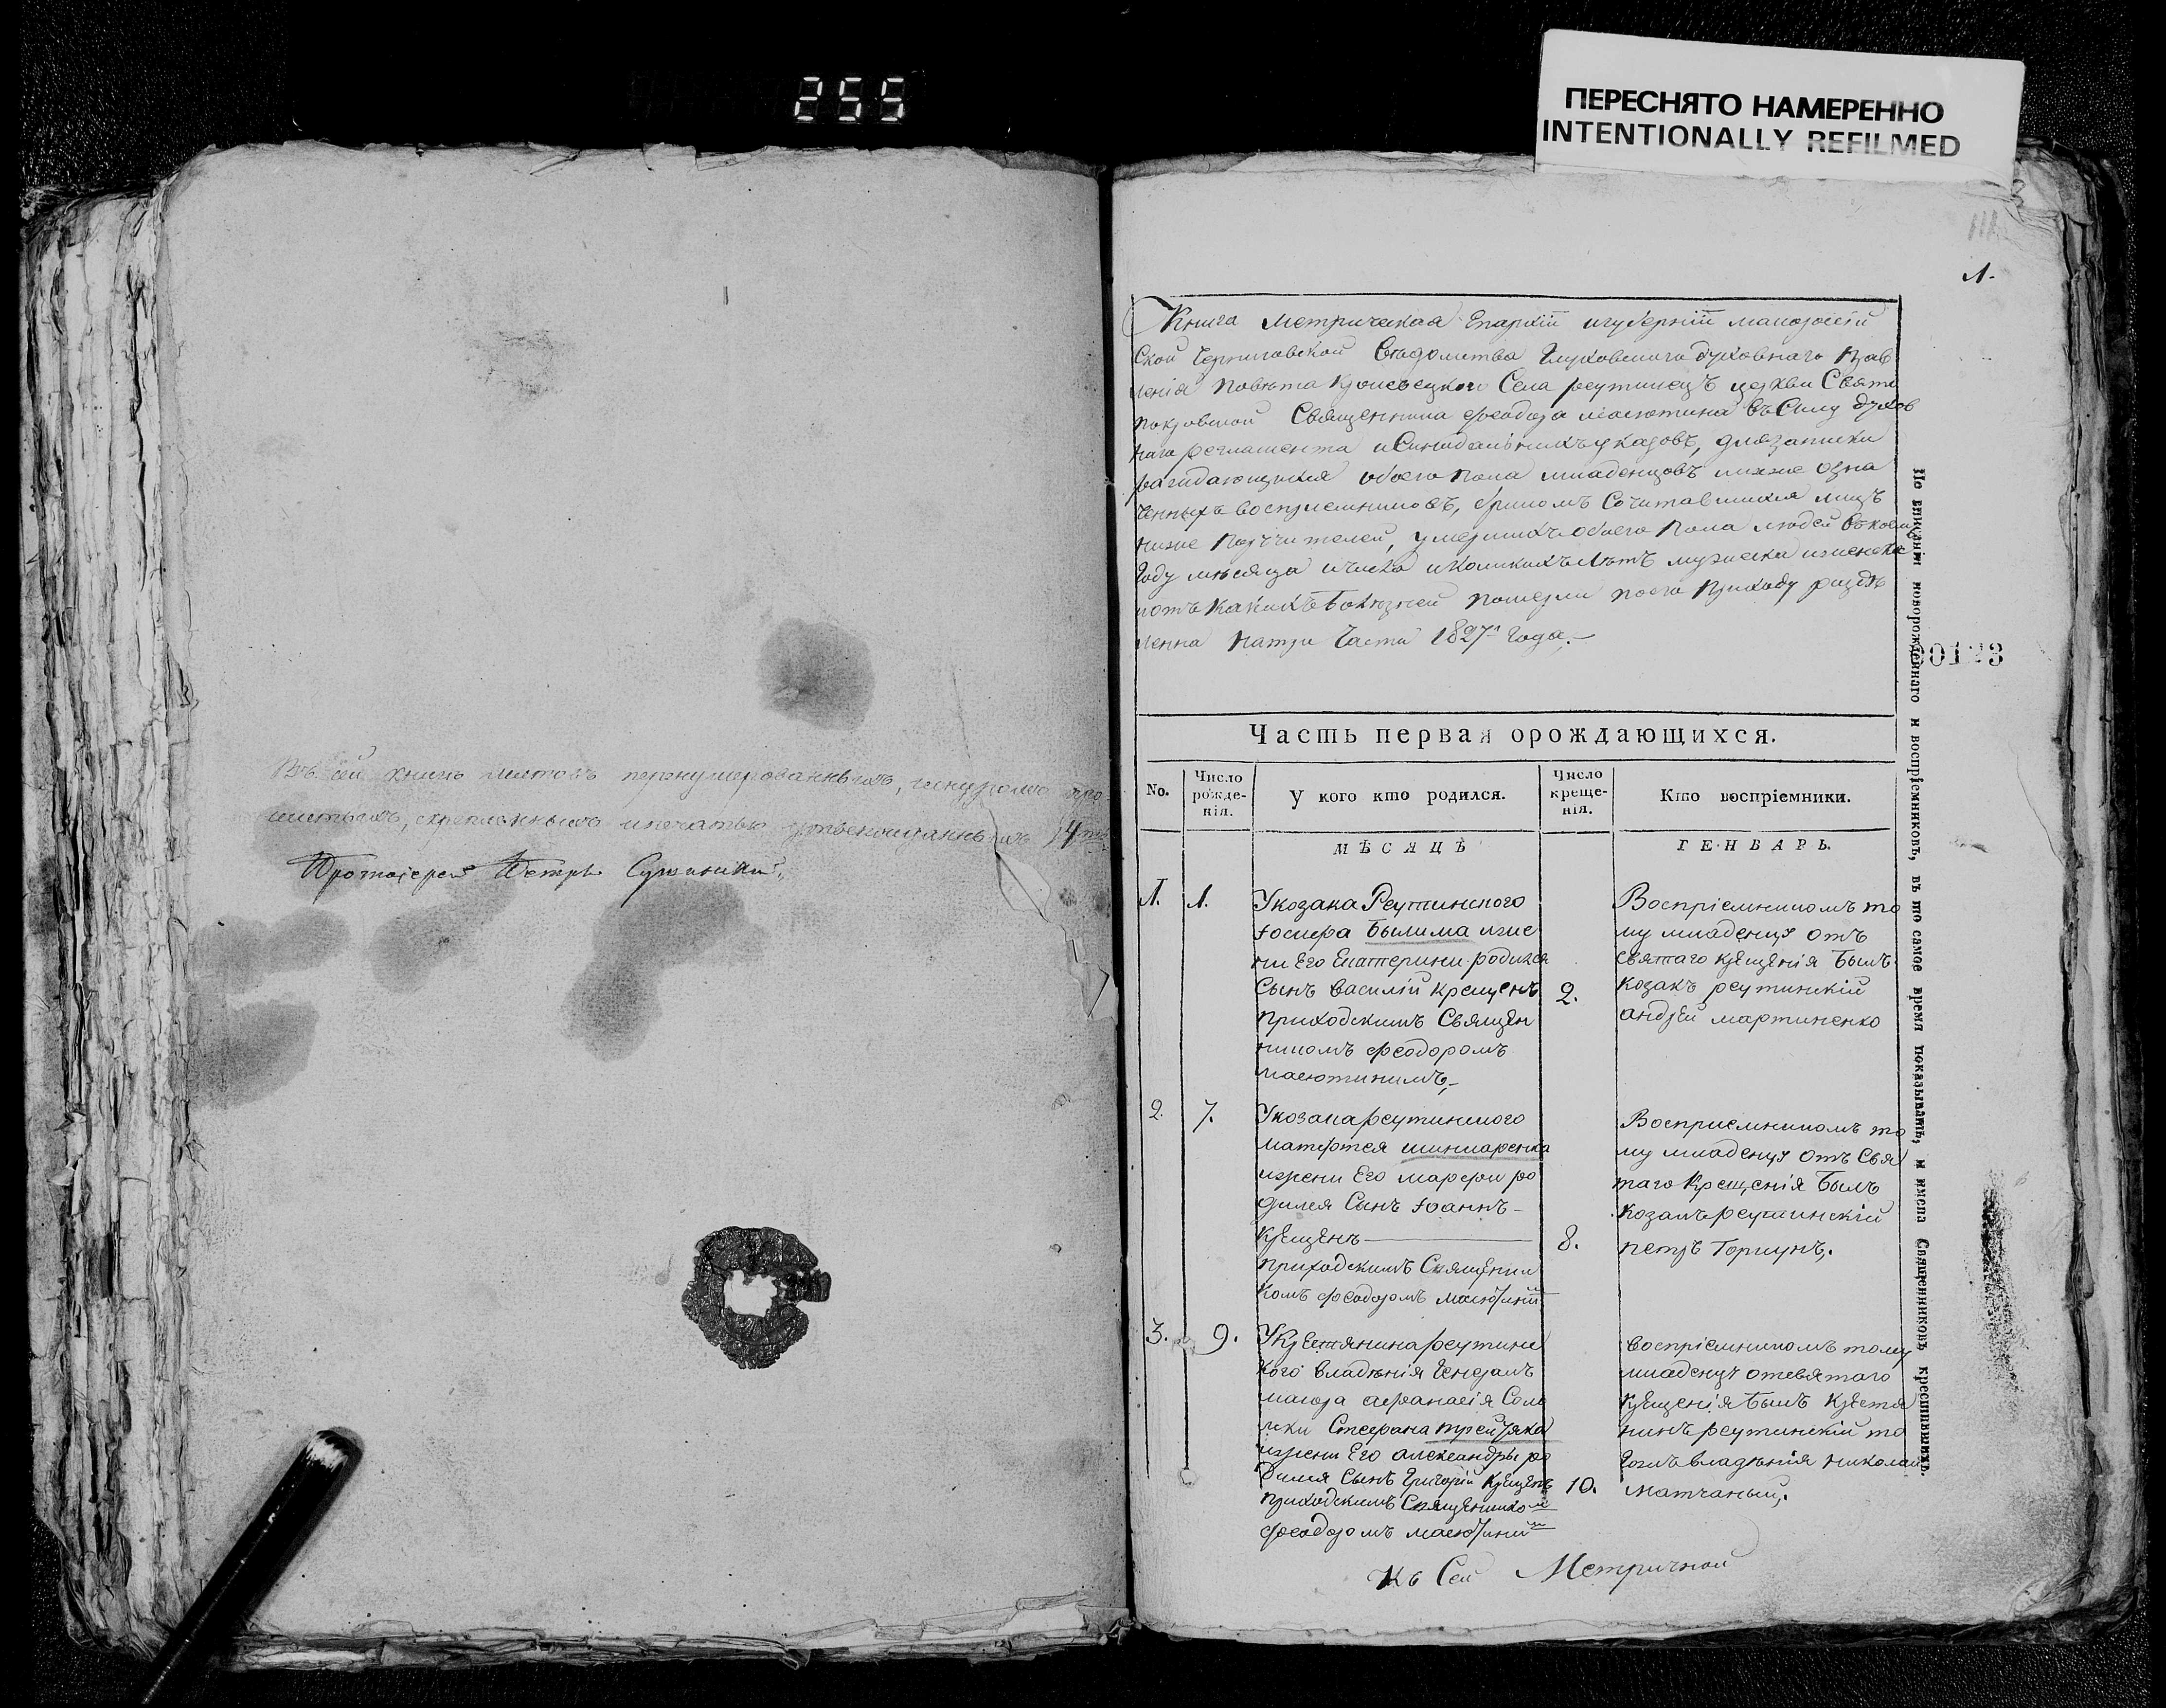 255
ПЕРЕСНЯТО НАМЕРЕННО
INTENTIONALLY REFILMED
Въ сей книгѣ листовъ перенумерованныхъ, шнуромъ про
шитыхъ, скрепленныхъ и печатью утвержденныхъ 14ть
Протоіерей Петръ
1.
Книга Метрическая Епархіи игуберніи малороссій
ской Черниговской Вѣдомства Глуховского духовнаго Прав
ленія Повѣта Кролевецкого Села реутинецъ церкви Свято
покровской Священника феодора масютина въ Силу духов
наго регламента иСинодальнихъ указовъ, длязаписки
раждающихся обоего Пола младенцовъ ниже озна
ченныхъ восприемниковъ, бракомъ Сочитавшихся лицъ
ниже Поручителей, умершихъ обоего Пола людей въкоемъ
Году мѣсяца ичисла иКоликихъ Лѣтъ мужеска иженска
иотъ Какихъ Болѣзней померли поего Приходу раздѣ
ленна Натри Части 1827 Года.
00123
Часть первая орождающихся.
No.
Число рожде- нія.
У кого кто родился.
Число креще- нія.
Кто воспріемники.
МѢСЯЦЪ
ГЕНВАРЬ.
1. 1.
Укозака Реутинского
Іосифа Былима ижене
ни Его Екатерини родился
Сынъ Василій крещенъ
приходскимъ Священ
никомъ феодоромъ
масютинимъ,
2.
Воспріемникомъ то
му младенцу отъ
святаго крещенія Былъ
Козакъ реутинскій
андрей мартиненко
2. 7.
Укозака реутинского
матфтея шинкаренка
ижени Его марфи ро
дился Сынъ Іоаннъ
крещенъ
приходскимъ Священи
комъ феодоромъ масютиним
8.
Восприемникомъ то
му младенцу Отъ Свя
таго Крещенія Былъ
Козакъ реутинскій
петръ Горкунъ.
3. 9.
Укрестянина реутинс
кого владѣнія Генералъ
маіора афанасія Соло
Стефана третяка
ижени Его александры ро
дился Сынъ Григорій Крещенъ
приходскимъ Священником
феодоромъ масютиним
10.
воспріемникомъ тому
младенцу отсвятаго
крещенія Былъ Крестя
нинъ реутинскій то
гожъ владѣнія николай
матчаный.
Къ Сей Метричной
По вписаніи новорожденнаго и воспріемниковъ, въ то самое время показывать, и числа Священниковъ крестившихъ.